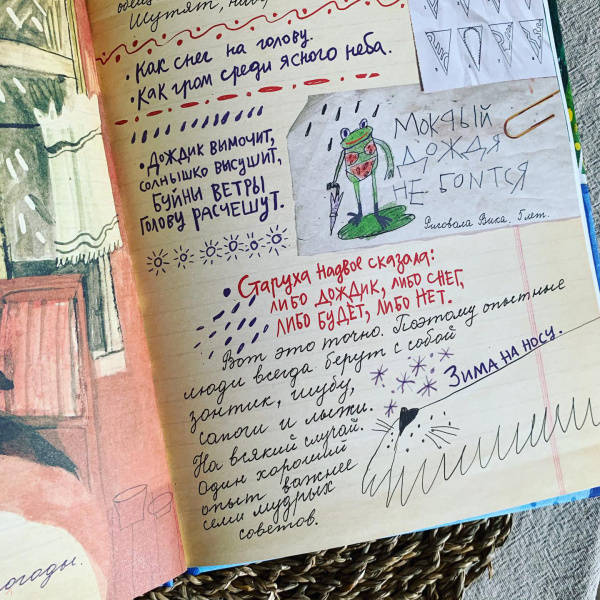 Шутят,
• Как снег на голову.
• Как гром среди ясного неба.
• Дождик вымочит,
солнышко высушит,
буйны ветры
голову расчешут.
МОКРЫЙ
ДОЖДЯ
НЕ БОИТСЯ
Рисовала Вика. 6 лет.
• Старуха надвое сказала:
либо дождик, либо снег,
либо будет, либо нет.
Вот это точно. Поэтому опытные
люди всегда берут с собой
зонтик, шубу,
сапоги и лыжи.
На всякий случай.
Один хороший
опыт важнее
семи мудрых
советов.
Зима на носу.
погоды.